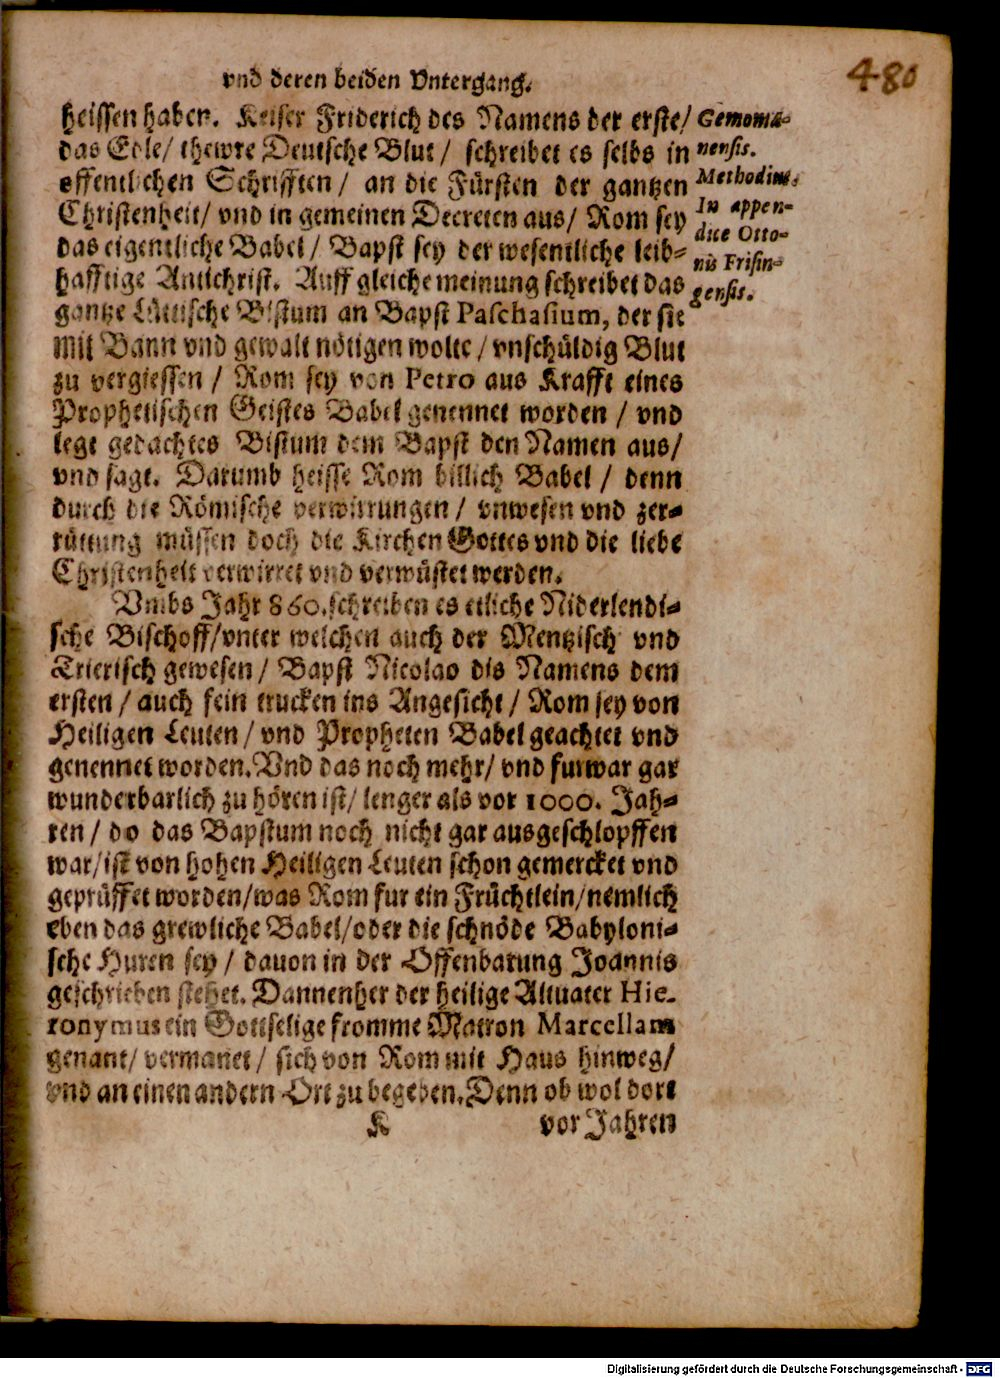 vnd deren beiden Vntergang.
480
heissen haben. Keiser Friderich des Namens der erste/
das Edle/ thewre Deutsche Blut/ schreibet es selbs in
offentlichen Schrifften/ an die Fürsten der gantzen
Christenheit/ vnd in gemeinen Decreten aus/ Rom sey
das eigentliche Babel/ Bapst sey der wesentliche leib-
hafftige Antichrist. Auff gleiche meinung schreibet das
gantze Lüttische Bistum an Bapst Paschasium, der sie
mit Bann vnd gewalt nötigen wolte/ vnschüldig Blut
zu vergiessen/ Rom sey von Petro aus Krafft eines
Prophetischen Geistes Babel genennet worden/ vnd
legt gedachtes Bistum dem Bapst den Namen aus/
vnd sagt. Darumb heisse Rom billich Babel/ denn
durch die Römische verwirrungen/ vnwesen vnd zer-
rüttung müssen doch die Kirchen Gottes vnd die liebe
Christenheit verwirret vnd verwüstet werden.
Vmbs Jahr 860. schreiben es etliche Niderlendi-
sche Bischoff/ vnter welchen auch der Mentzisch vnd
Trierisch gewesen/ Bapst Nicolao dis Namens dem
ersten/ auch fein trucken ins Angesicht/ Rom sey von
Heiligen Leuten/ vnd Propheten Babel geachtet vnd
genennet worden. Vnd das noch mehr/ vnd furwar gar
wunderbarlich zu hören ist/ lenger als vor 1000. Jah-
ren/ do das Bapstum noch nicht gar ausgeschlopffen
war/ ist von hohen Heiligen Leuten schon gemercket vnd
geprüffet worden/ was Rom fur ein Früchtlein/ nemlich
eben das grewliche Babel/ oder die schnöde Babyloni-
sche Huren sey/ dauon in der Offenbarung Joannis
geschrieben stehet. Dannenher der heilige Altuater Hie-
ronymus ein Gottselige fromme Matron Marcellam
genant/ vermanet/ sich von Rom mit Haus hinweg/
vnd an einen andern Ort zu begeben. Denn ob wol dort
K vor Jahren
Gemomia-
nensis.
Methodius.
In appen-
dice Otto-
nis Frisin-
gensis.
Digitalisierung gefördert durch die Deutsche Forschungsgemeinschaft - DFG